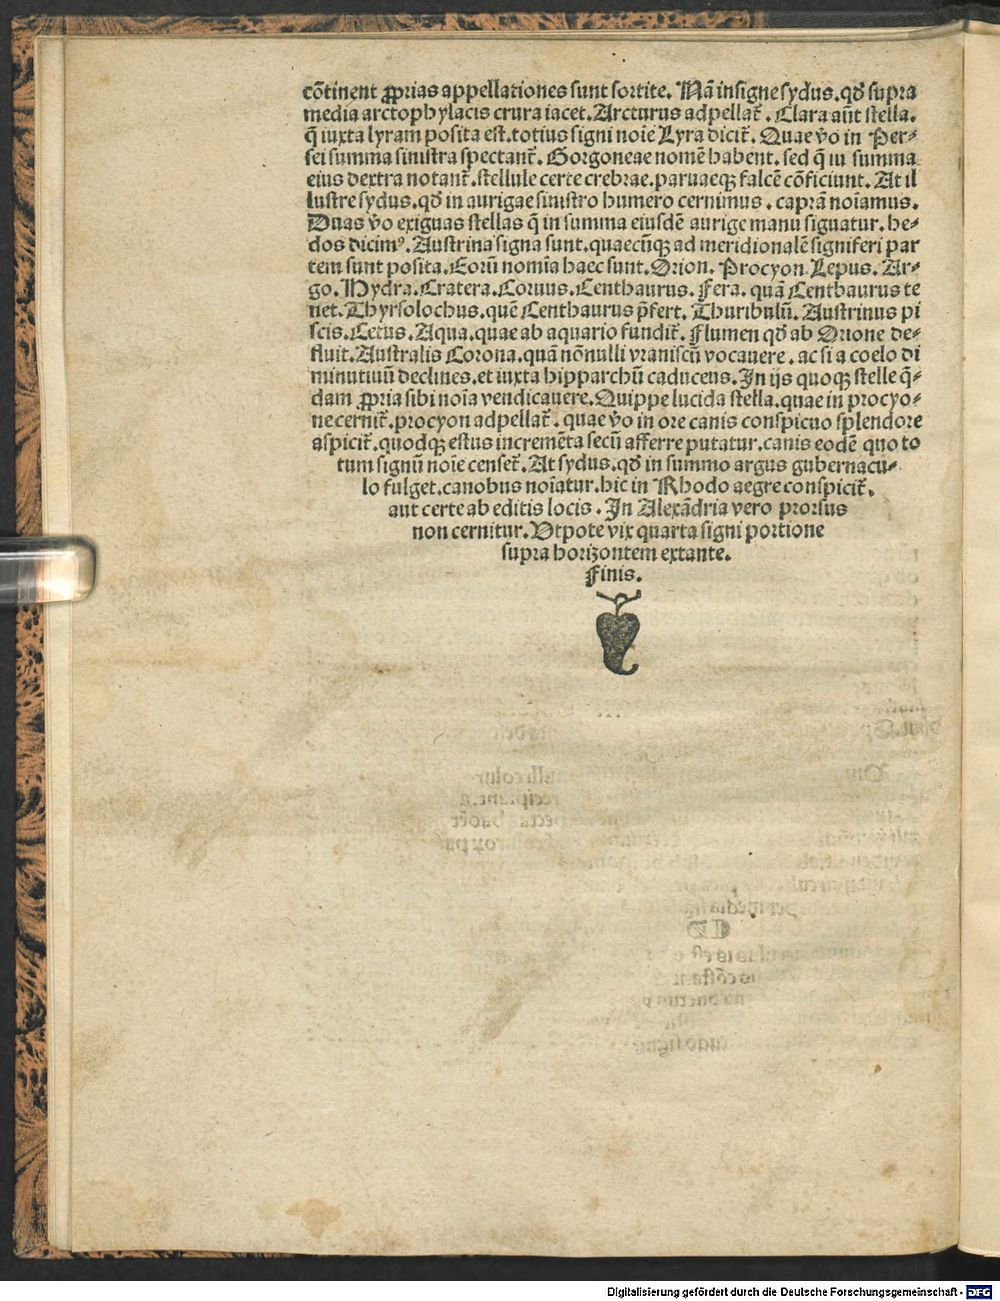 cōtinent ꝓprias appellationes sunt sortite. Nā insigne sydus. qđ supra
media arctophylacis crura iacet. Arcturus adpellat̄. Clara aūt stella.
q̄ iuxta lyram posita est. totius signi noīe Lyra dicit̄. Quae ṽo in Per-
sei summa sinistra spectant̄. Gorgoneae nomē habent. sed q̄ in summa
eius dextra notant̄. stellule certe crebrae. paruaeqꝫ falcē cōficiunt. At il
lustre sydus. qđ in aurigae sinistro humero cernimus. caprā noīamus.
Duas ṽo exiguas stellas q̄ in summa eiusdē aurige manu signatur. he-
dos dicimꝰ. Austrina signa sunt. quaecūqꝫ ad meridionalē signiferi par
tem sunt posita. Eorū nomīa haec sunt. Orion. Procyon Lepus. Ar-
go. Hydra. Cratera. Coruus. Centhaurus. Fera. quā Centhaurus te
net. Thyrsolochus. quē Centhaurus p̄fert. Thuribulū. Austrinus pi
scis. Cetus. Aqua. quae ab aquario fundit̄. Flumen qđ ab Orione de-
fluit. Australis Corona. quā nōnulli vraniscū vocauere. ac si a coelo di
minutiuū declines. et iuxta hipparchū caduceus. In ijs quoqꝫ stelle q̄-
dam ꝓpria sibi noīa vendicauere. Quippe lucida stella. quae in procyo-
ne cernit̄. procyon adpellat̄. quae ṽo in ore canis conspicuo splendore
aspicit̄. quodqꝫ estus incremēta secū afferre putatur. canis eodē quo to
tum signū noīe censet̄. At sydus. qđ in summo argus gubernacu-
lo fulget. canobus noīatur. hic in Rhodo aegre conspicit̄.
aut certe ab editis locis. In Alexādria vero prorsus
non cernitur. Vtpote vix quarta signi portione
supra horizontem extante.
Finis.
Digitalisierung gefördert durch die Deutsche Forschungsgemeinschaft - DFG